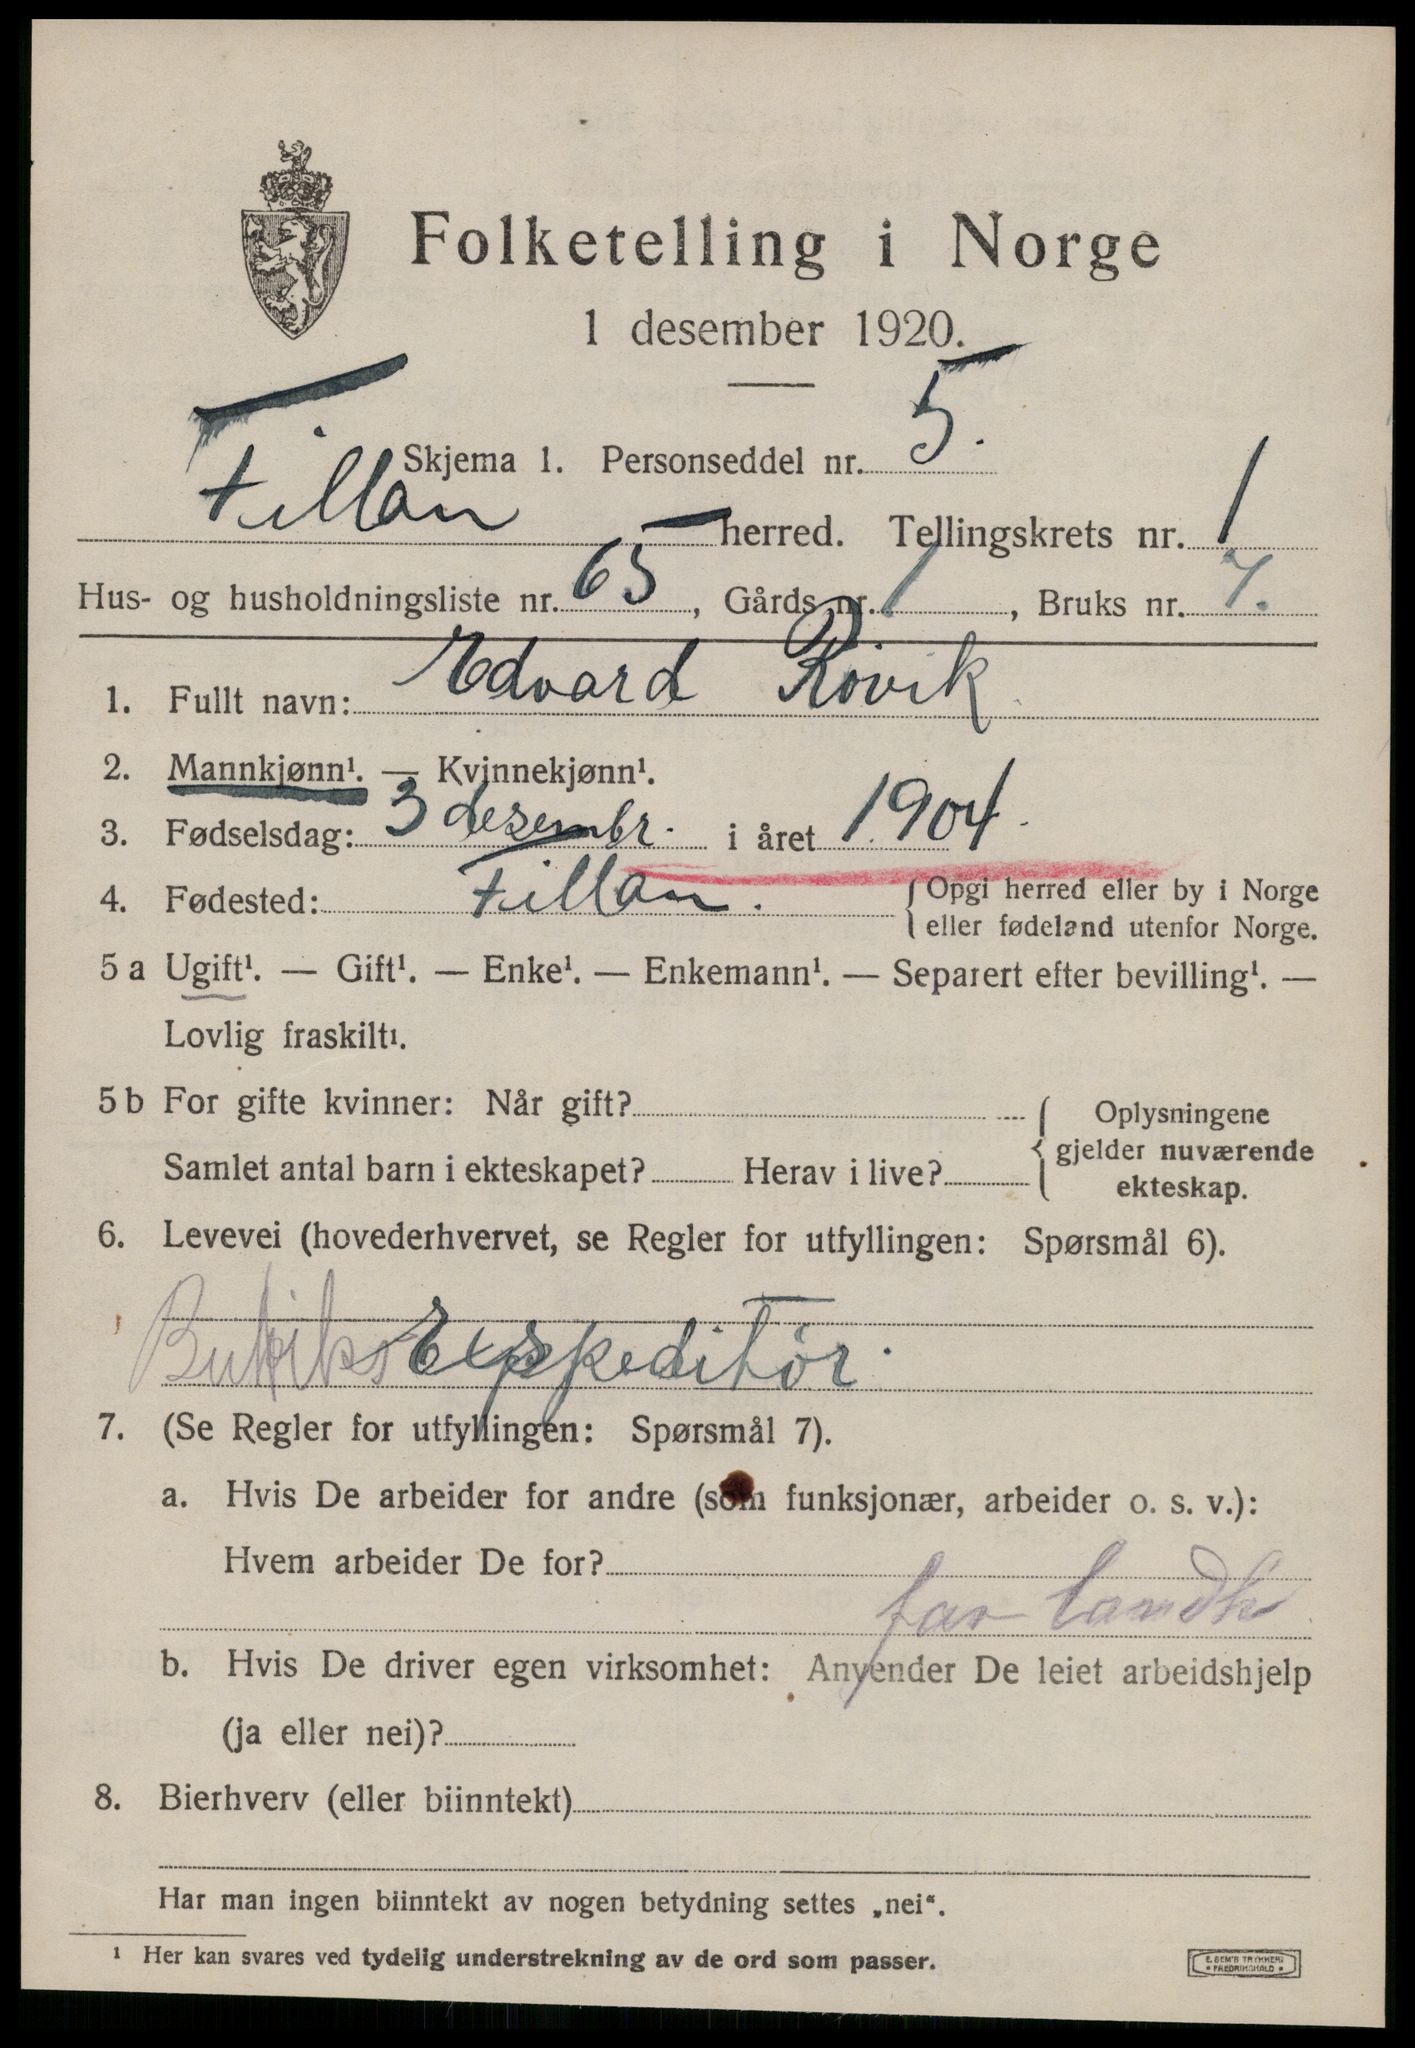 Folketelling i Norge
1 desember 1920.
Skjema 1. Personseddel nr. 5.
Fillan herred. Tellingskrets nr. 1
Hus- og husholdningsliste nr. 65, Gårds nr. 1, Bruks nr. 7.
1. Fullt navn: Edvard Røvik
2. Mannkjønn¹. — Kvinnekjønn¹.
3. Fødselsdag: 3 desembr. i året 1904.
4. Fødested: Fillan. { Opgi herred eller by i Norge
eller fødeland utenfor Norge.
5 a Ugift¹. — Gift¹. — Enke¹. — Enkemann¹. — Separert efter bevilling¹. —
Lovlig fraskilt¹.
5 b For gifte kvinner: Når gift? { Oplysningene
gjelder nuværende
Samlet antal barn i ekteskapet? Herav i live?
ekteskap.
6. Levevei (hovederhvervet, se Regler for utfyllingen: Spørsmål 6).
Butiks Expeditør.
7. (Se Regler for utfyllingen: Spørsmål 7).
a. Hvis De arbeider for andre (som funksjonær, arbeider o. s. v.):
Hvem arbeider De for?
far landh
b. Hvis De driver egen virksomhet: Anvender De leiet arbeidshjelp
(ja eller nei)?
8. Bierhverv (eller biinntekt)
Har man ingen biinntekt av nogen betydning settes „nei“.
¹ Her kan svares ved tydelig understrekning av de ord som passer.
E. SEM'S TRYKKERI
• FREDRIKSHALD •